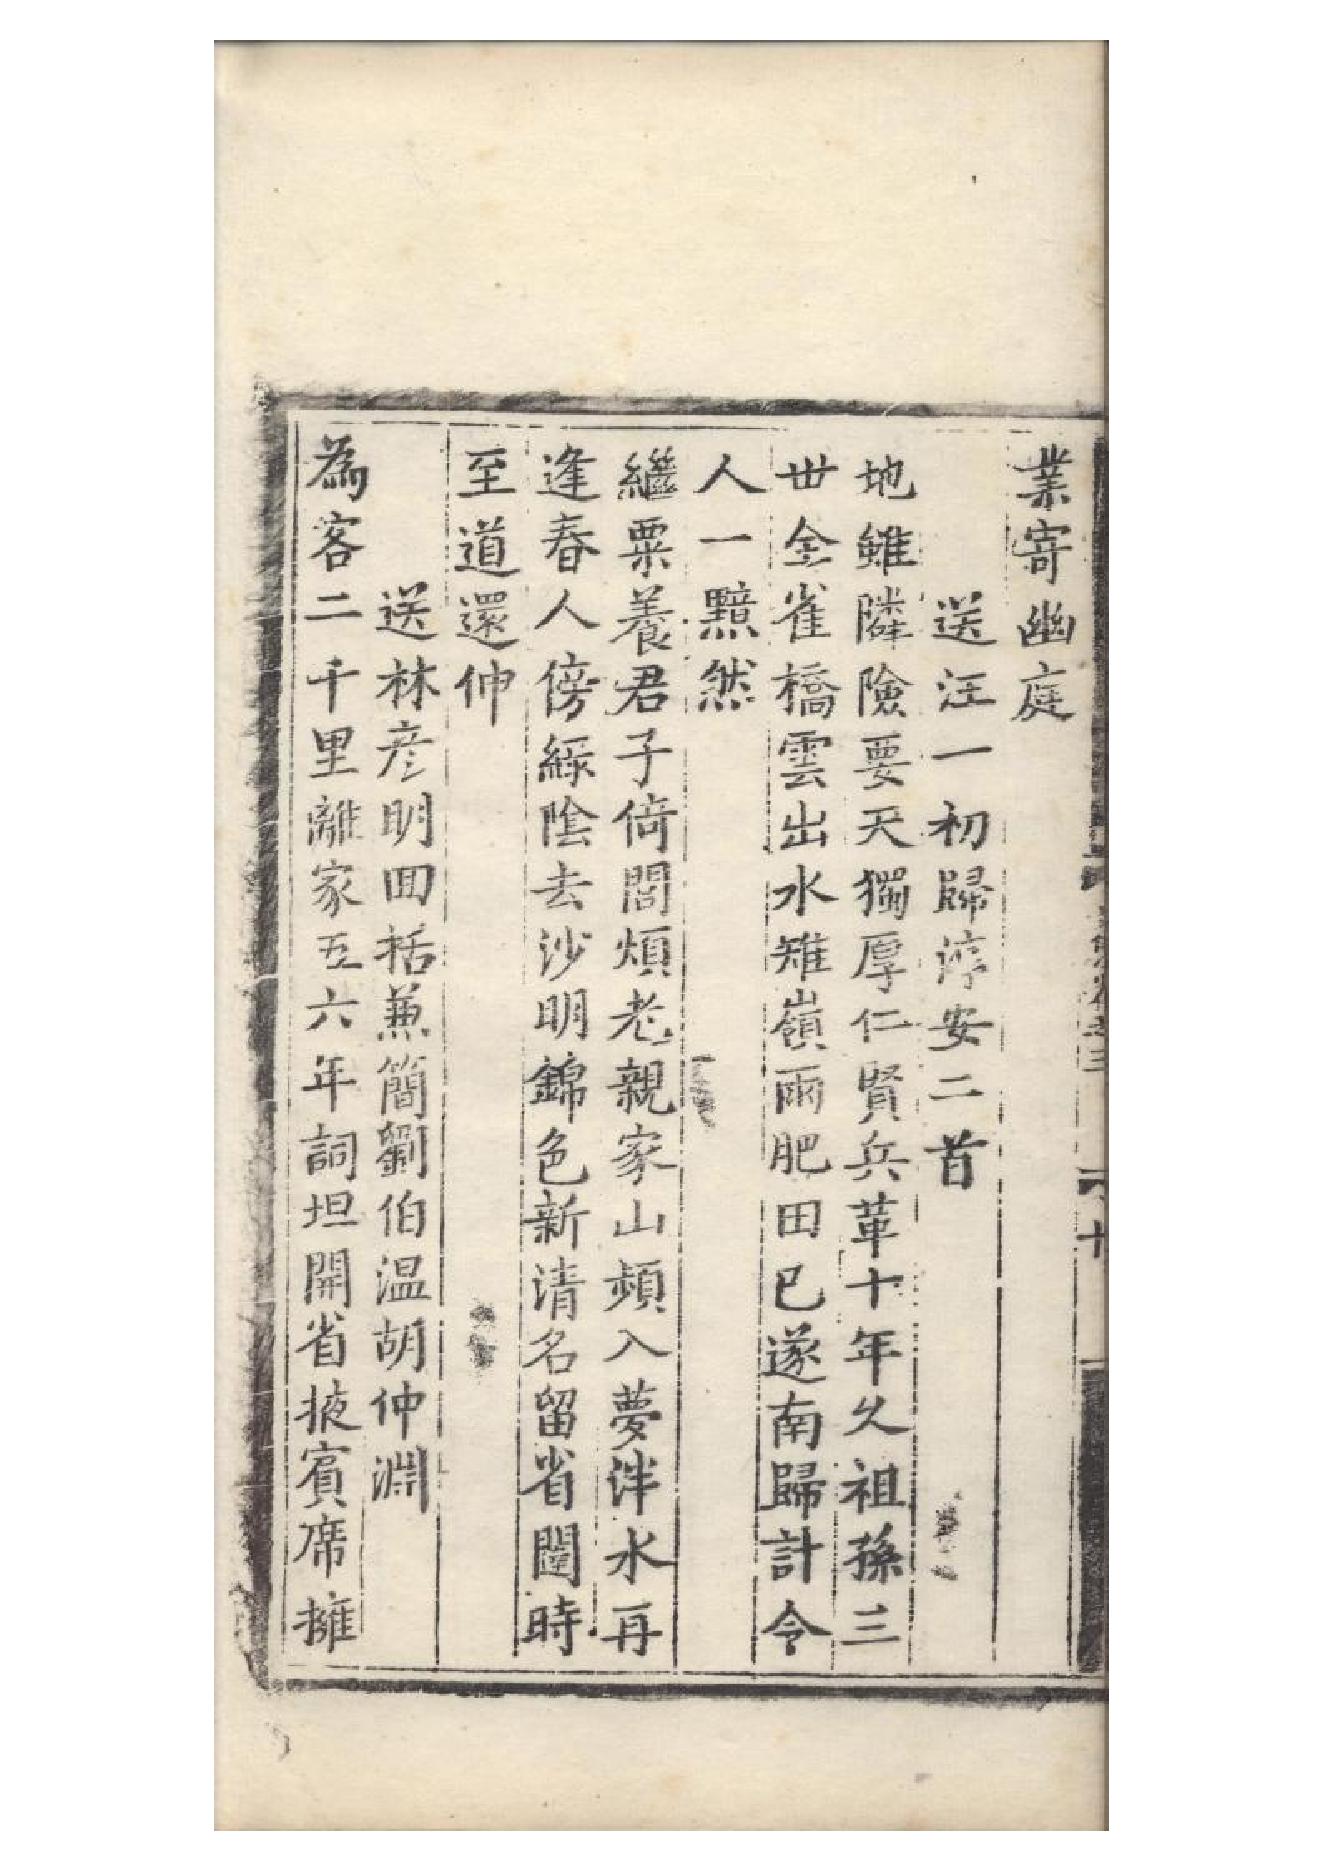 業寄幽庭
送汪一初歸淳安二首
地雖隣險要天獨厚仁賢兵革十年久祖孫三
世金雀橋雲出水雉嶺雨肥田已遂南歸計令
人一黯然
繼粟養君子倚閭煩老親家山頻入夢泮水再
逢春人傍綠陰去沙明錦色新清名留省闥時
至道還伸
送林彥明囬栝兼簡劉伯温胡仲淵
為客二千里離家五六年詞坦開省掖賓席擁